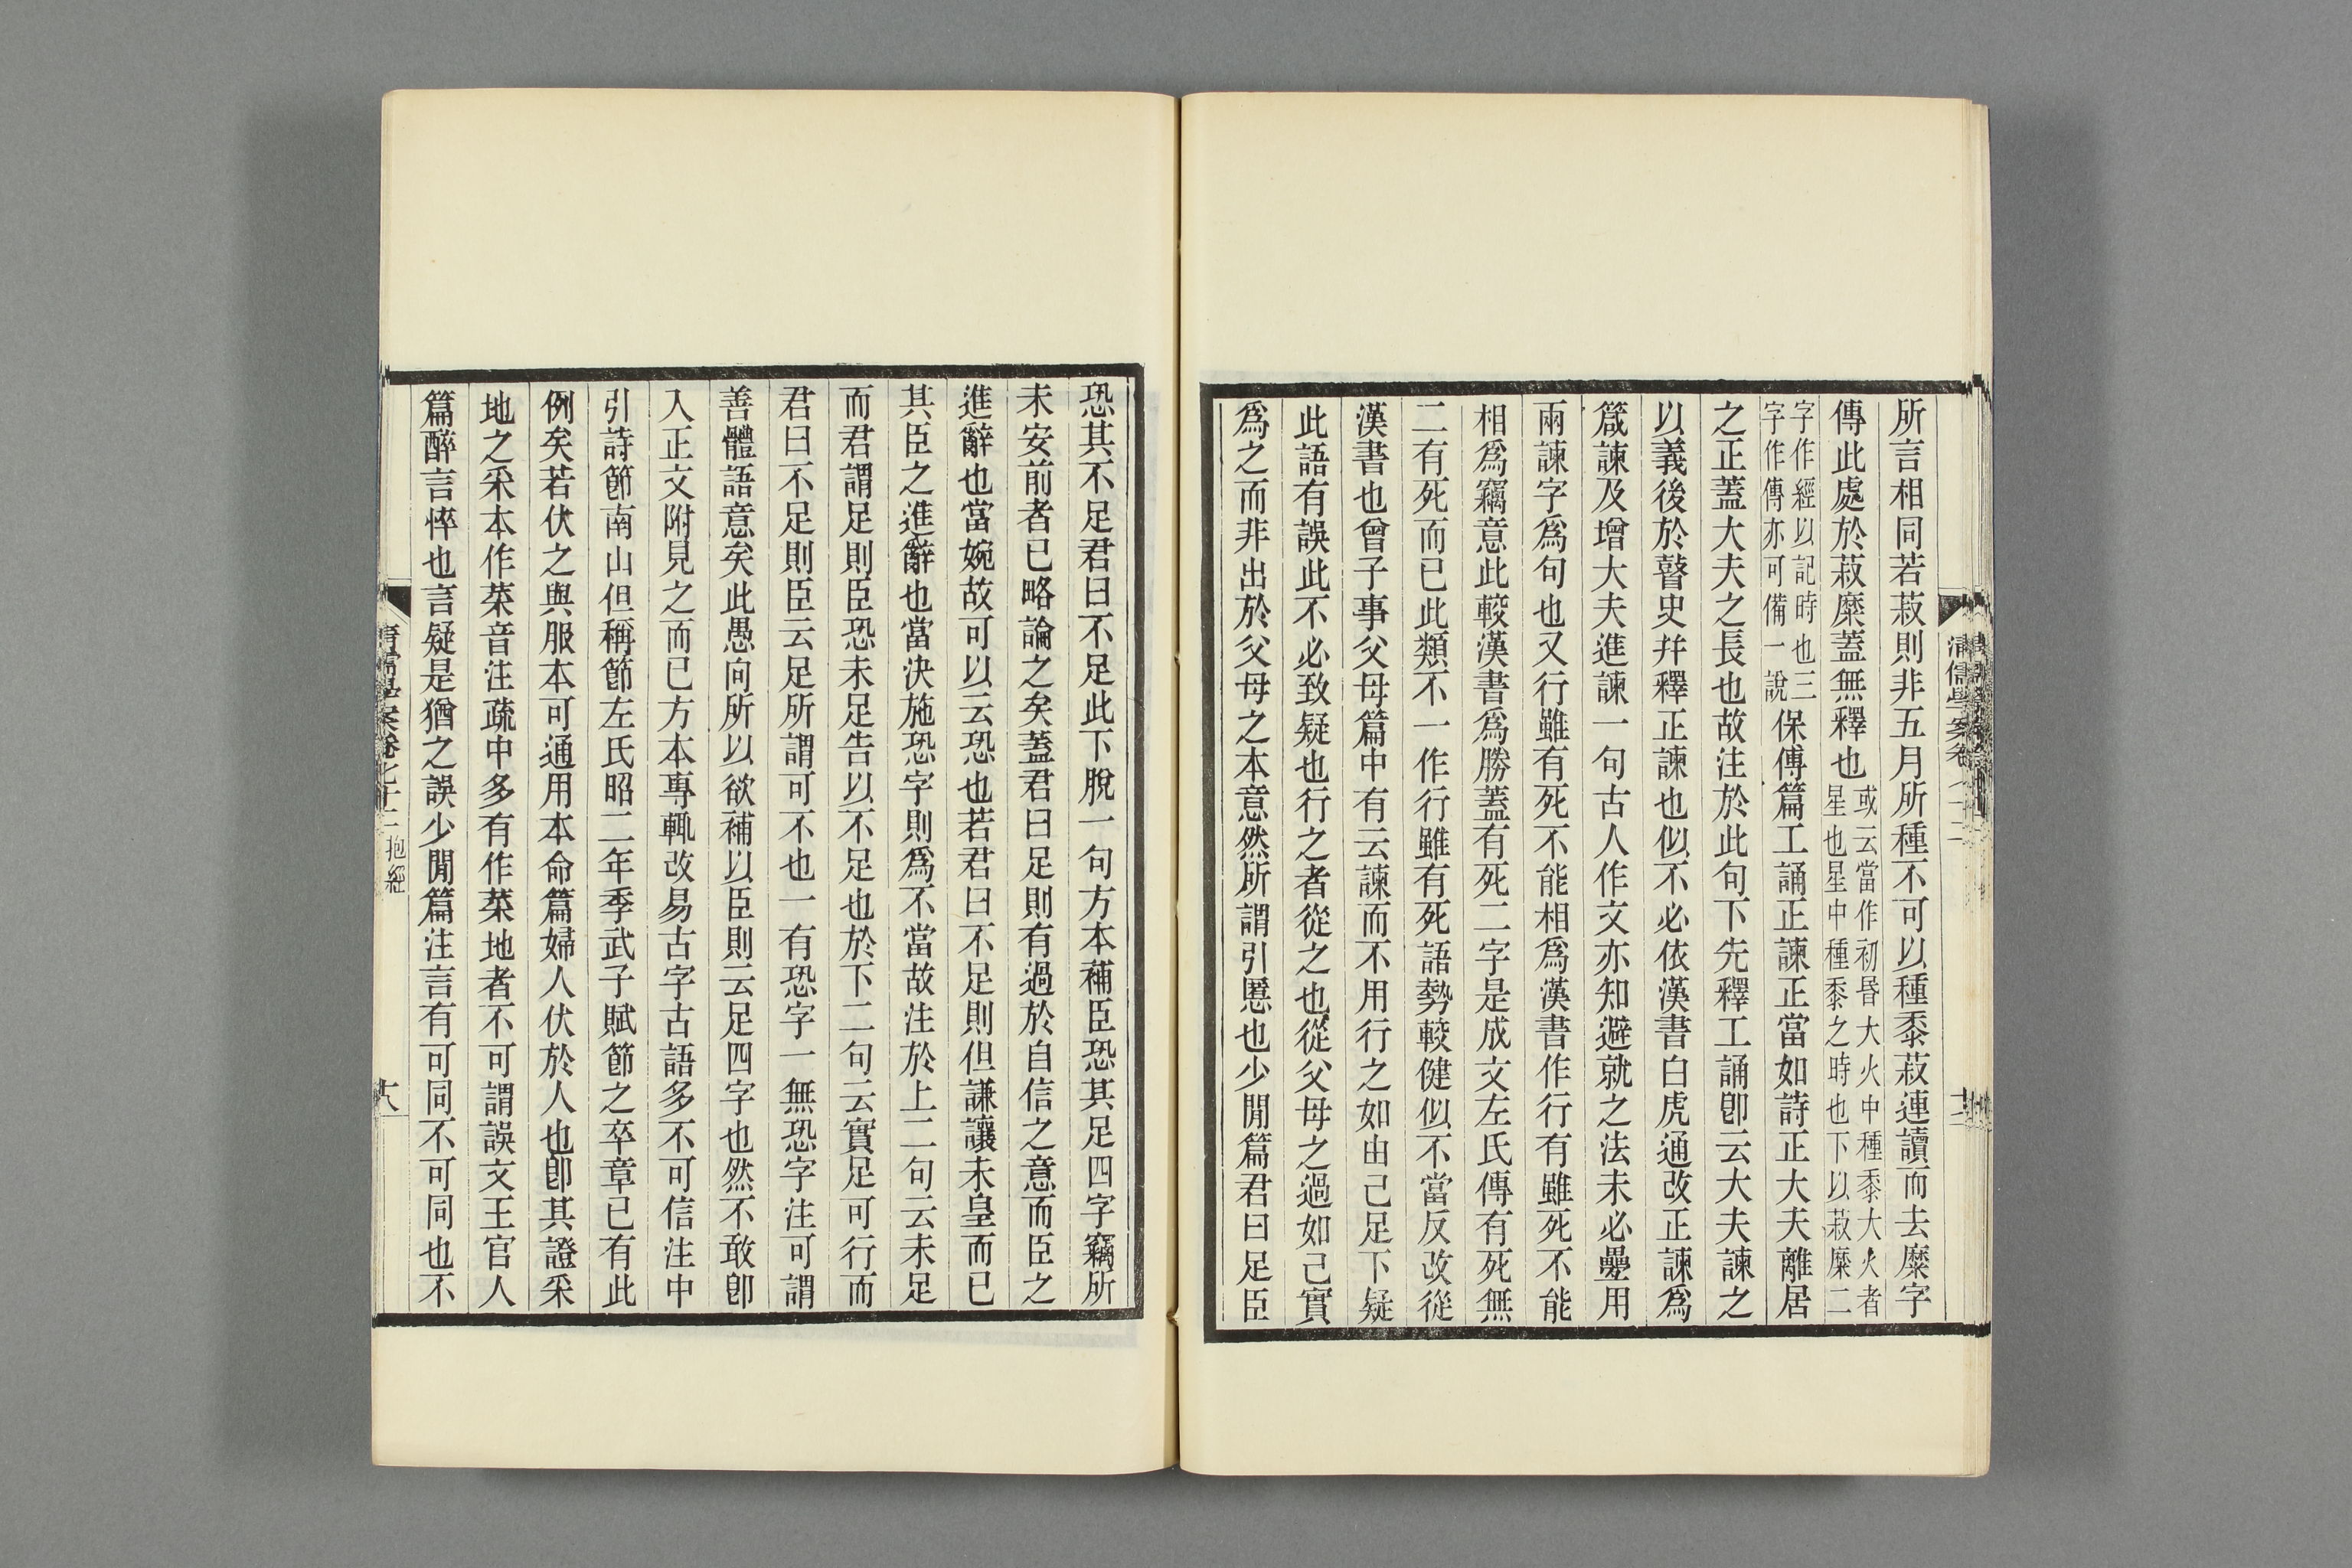 所言相同若菽則非五月所種不可以種黍菽連讀而去糜字
傳此處於菽糜蓋無釋也
或云當作初昏大火中種黍大火者
星也星中種黍之時也下以菽糜二
字作經以記時也三
字作傳亦可備一說
保傅篇工誦正諫正當如詩正大夫離居
之正蓋大夫之長也故注於此句下先釋工誦卽云大夫諫之
以義後於瞽史幷釋正諫也似不必依漢書白虎通改正諫爲
箴諫及增大夫進諫一句古人作文亦知避就之法未必疊用
兩諫字爲句也又行雖有死不能相爲漢書作行有雖死不能
相爲竊意此較漢書爲勝蓋有死二字是成文左氏傳有死無
二有死而已此類不一作行雖有死語勢較健似不當反改從
漢書也曾子事父母篇中有云諫而不用行之如由己足下疑
此語有誤此不必致疑也行之者從之也從父母之過如己實
爲之而非出於父母之本意然所謂引慝也少閒篇君曰足臣
恐其不足君曰不足此下脫一句方本補臣恐其足四字竊所
未安前者已略論之矣蓋君曰足則有過於自信之意而臣之
進辭也當婉故可以云恐也若君曰不足則但謙讓未皇而已
其臣之進辭也當決施恐字則爲不當故注於上二句云未足
而君謂足則臣恐未足告以不足也於下二句云實足可行而
君曰不足則臣云足所謂可不也一有恐字一無恐字注可謂
善體語意矣此愚向所以欲補以臣則云足四字也然不敢卽
入正文附見之而已方本專輒改易古字古語多不可信注中
引詩節南山但稱節左氏昭二年季武子賦節之卒章已有此
例矣若伏之與服本可通用本命篇婦人伏於人也卽其證釆
地之釆本作菜音注疏中多有作菜地者不可謂誤文王官人
篇醉言悴也言疑是猶之誤少閒篇注言有可同不可同也不
抱經